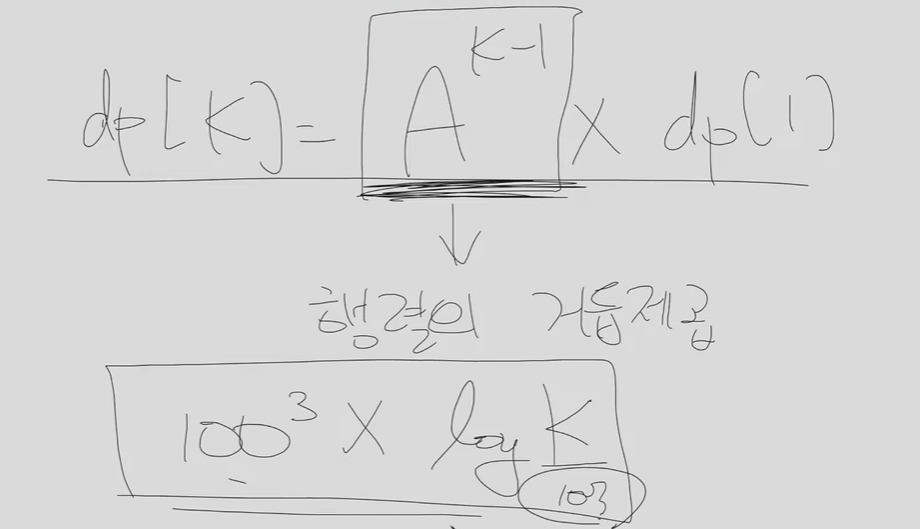 dp[K] = A^{K-1} × dp[1]
행렬의 거듭제곱
100^3 × log K